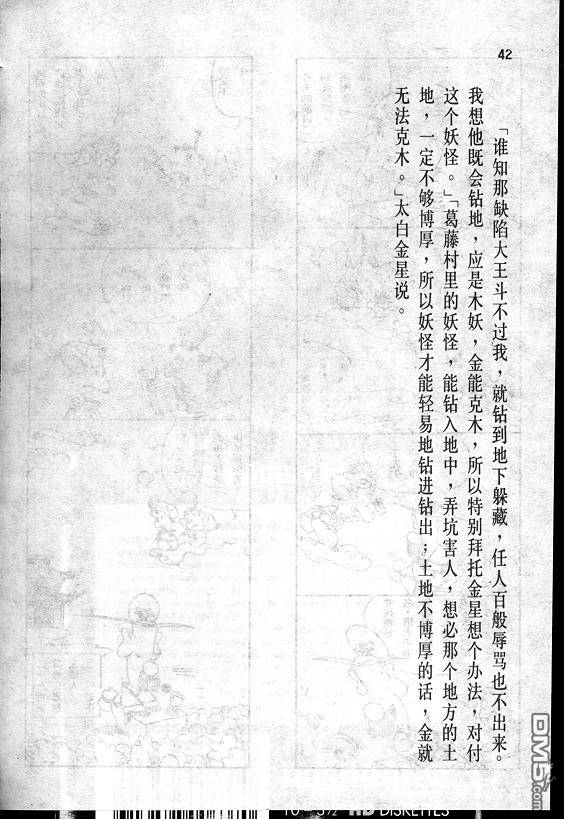 42
「谁知那缺陷大王斗不过我，就钻到地下躲藏，任人百般辱骂也不出来。
我想他既会钻地，应是木妖，金能克木，所以特别拜托金星想个办法，对付
这个妖怪。」「葛藤村里的妖怪，能钻入地中，弄坑害人，想必那个地方的土
地，一定不够博厚，所以妖怪才能轻易地钻进钻出；土地不博厚的话，金就
无法克木。」太白金星说。
DM5.com
HD DISKETTES